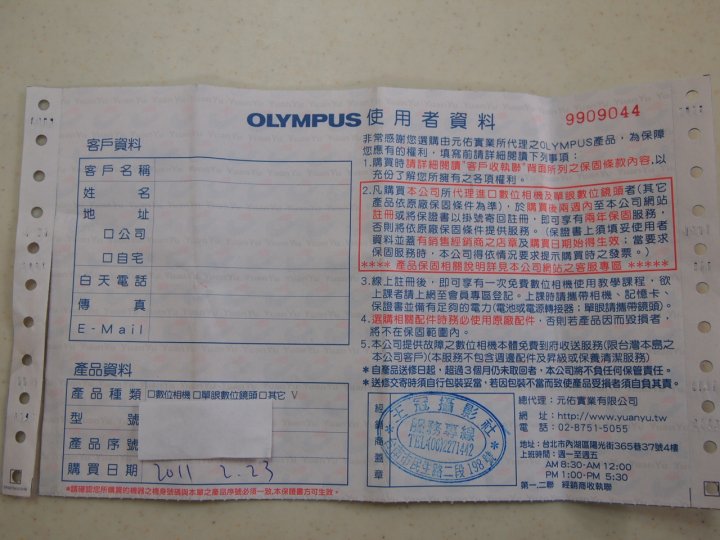 OLYMPUS 使用者資料
9909044
客戶資料
客戶名稱
姓名
地址
□公司
□自宅
白天電話
傳真
E-Mail
產品資料
產品種類 □數位相機 □單眼數位鏡頭 □其它 V
型號
產品序號
購買日期 2011 2.23
*請確認您所購買的機器之機身號碼與本單之產品序號必須一致,本保證書方可生效。
非常感謝您選購由元佑實業所代理之OLYMPUS產品，為保障
您應有的權利，填寫前請詳細閱讀下列事項：
1.購買時請詳細閱讀"客戶收執聯"背面所列之保固條款內容,以
充份了解您所擁有之各項權利。
2.凡購買本公司所代理進口數位相機及單眼數位鏡頭者(其它
產品依原廠保固條件為準)，於購買後兩週內至本公司網站
註冊或將保證書以掛號寄回註冊，即可享有兩年保固服務，
否則將依原廠保固條件提供服務。(保證書上須填妥使用者
資料並蓋有銷售經銷商之店章及購買日期始得生效；當要求
保固服務時，本公司得依情況要求提示購買時之發票。)
**** 產品保固相關說明詳見本公司網站之客服專區 *****
3.線上註冊後，即可享有一次免費數位相機使用教學課程，欲
上課者請上網至會員專區登記。上課時請攜帶相機、記憶卡、
保證書並備有足夠的電力(電池或電源轉接器：單眼請攜帶鏡頭)。
4.選購相關配件時務必使用原廠配件，否則若產品因而毀損者，
將不在保固範圍內。
5.本公司提供故障之數位相機本體免費到府收送服務(限台灣本島之
本公司客戶)(本服務不包含週邊配件及昇級或保養清潔服務)
*自產品送修日起，超過3個月仍未取回者，本公司將不負任何保管責任。
*送修交寄時須自行包裝妥當，若因包裝不當而致使產品受損者須自負其責。
經銷商蓋章
王冠攝影社
服務專線
TEL:(06)2271442
民生路二段198號
總代理：元佑實業有限公司
網 址：http://www.yuanyu.tw
電 話：02-8751-5055
地址：台北市內湖區陽光街365巷37號4樓
上班時間：週一至週五
AM 8:30-AM 12:00
PM 1:00-PM 5:30
第一,二聯 經銷商收執聯